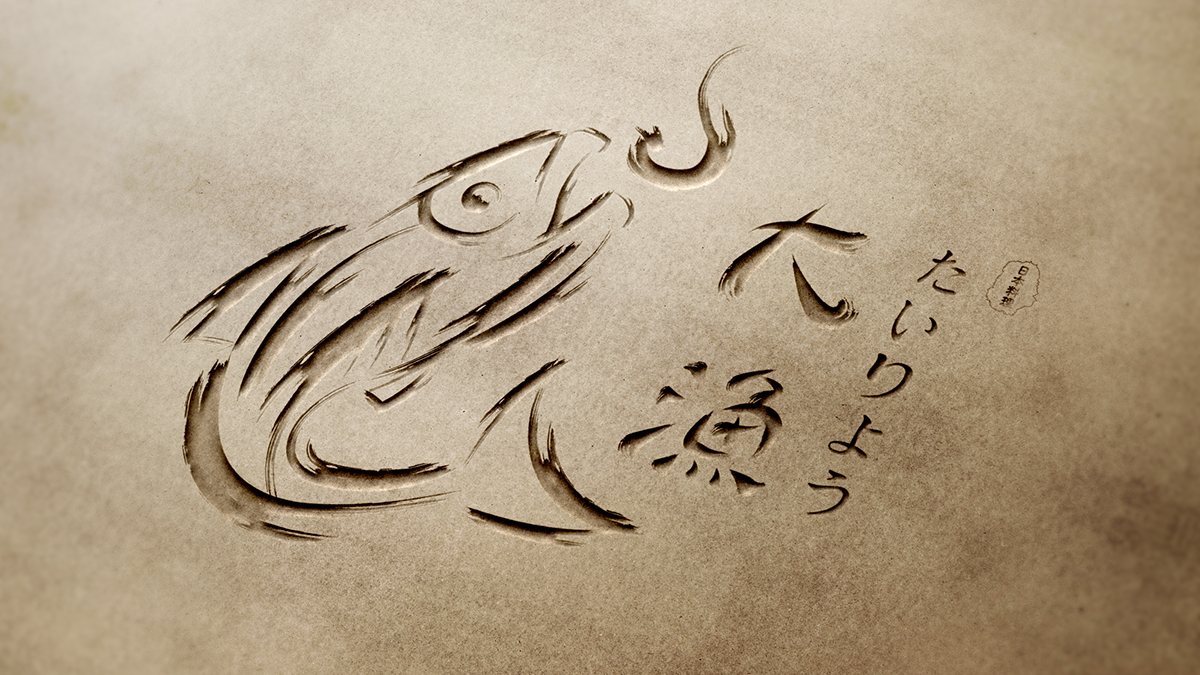 大漁
たいりよう